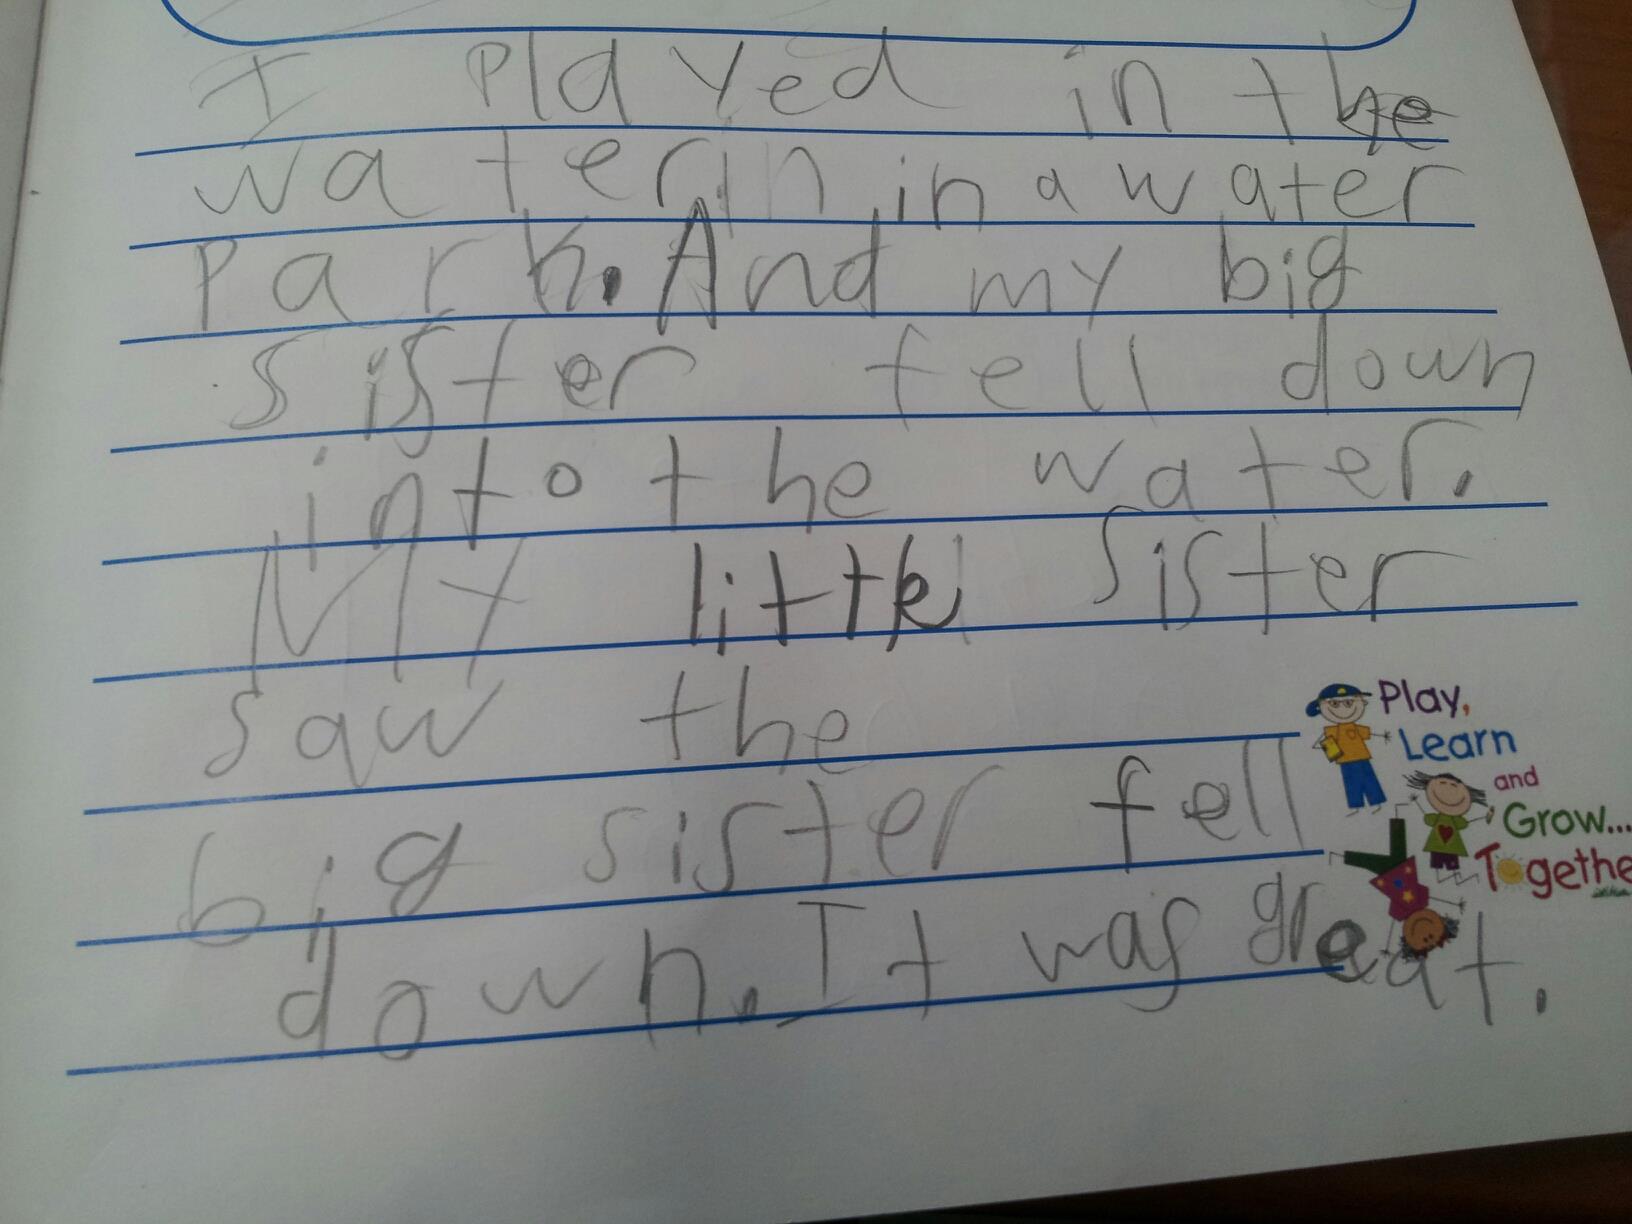 I played in the
water in a water
park. And my big
sister fell down
into the water.
My little sister
saw the
big sister fell
down. It was great.
Play,
Learn
and
Grow...
Togethe